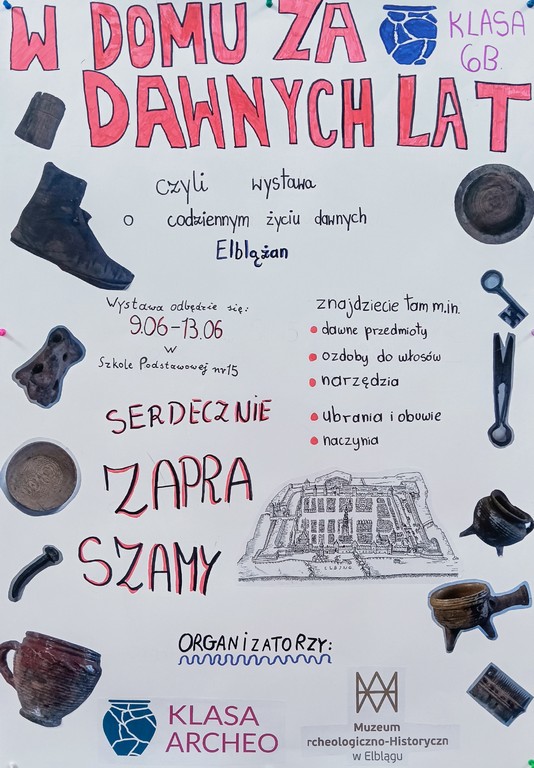 W DOMU ZA
KLASA
6B.
DAWNYCH LAT
czyli wystawa
o codziennym życiu dawnych
Elblążan
Wystawa odbędzie się:
9.06-13.06
w
Szkole Podstawowej nr 15
znajdziecie tam m.in.
dawne przedmioty
ozdoby do włosów
narzędzia
ubrania i obuwie
naczynia
SERDECZNIE
ZAPRA
SZAMY
ELBING
ORGANIZATORZY:
KLASA
ARCHEO
Muzeum
rcheologiczno-Historyczn
w Elblągu